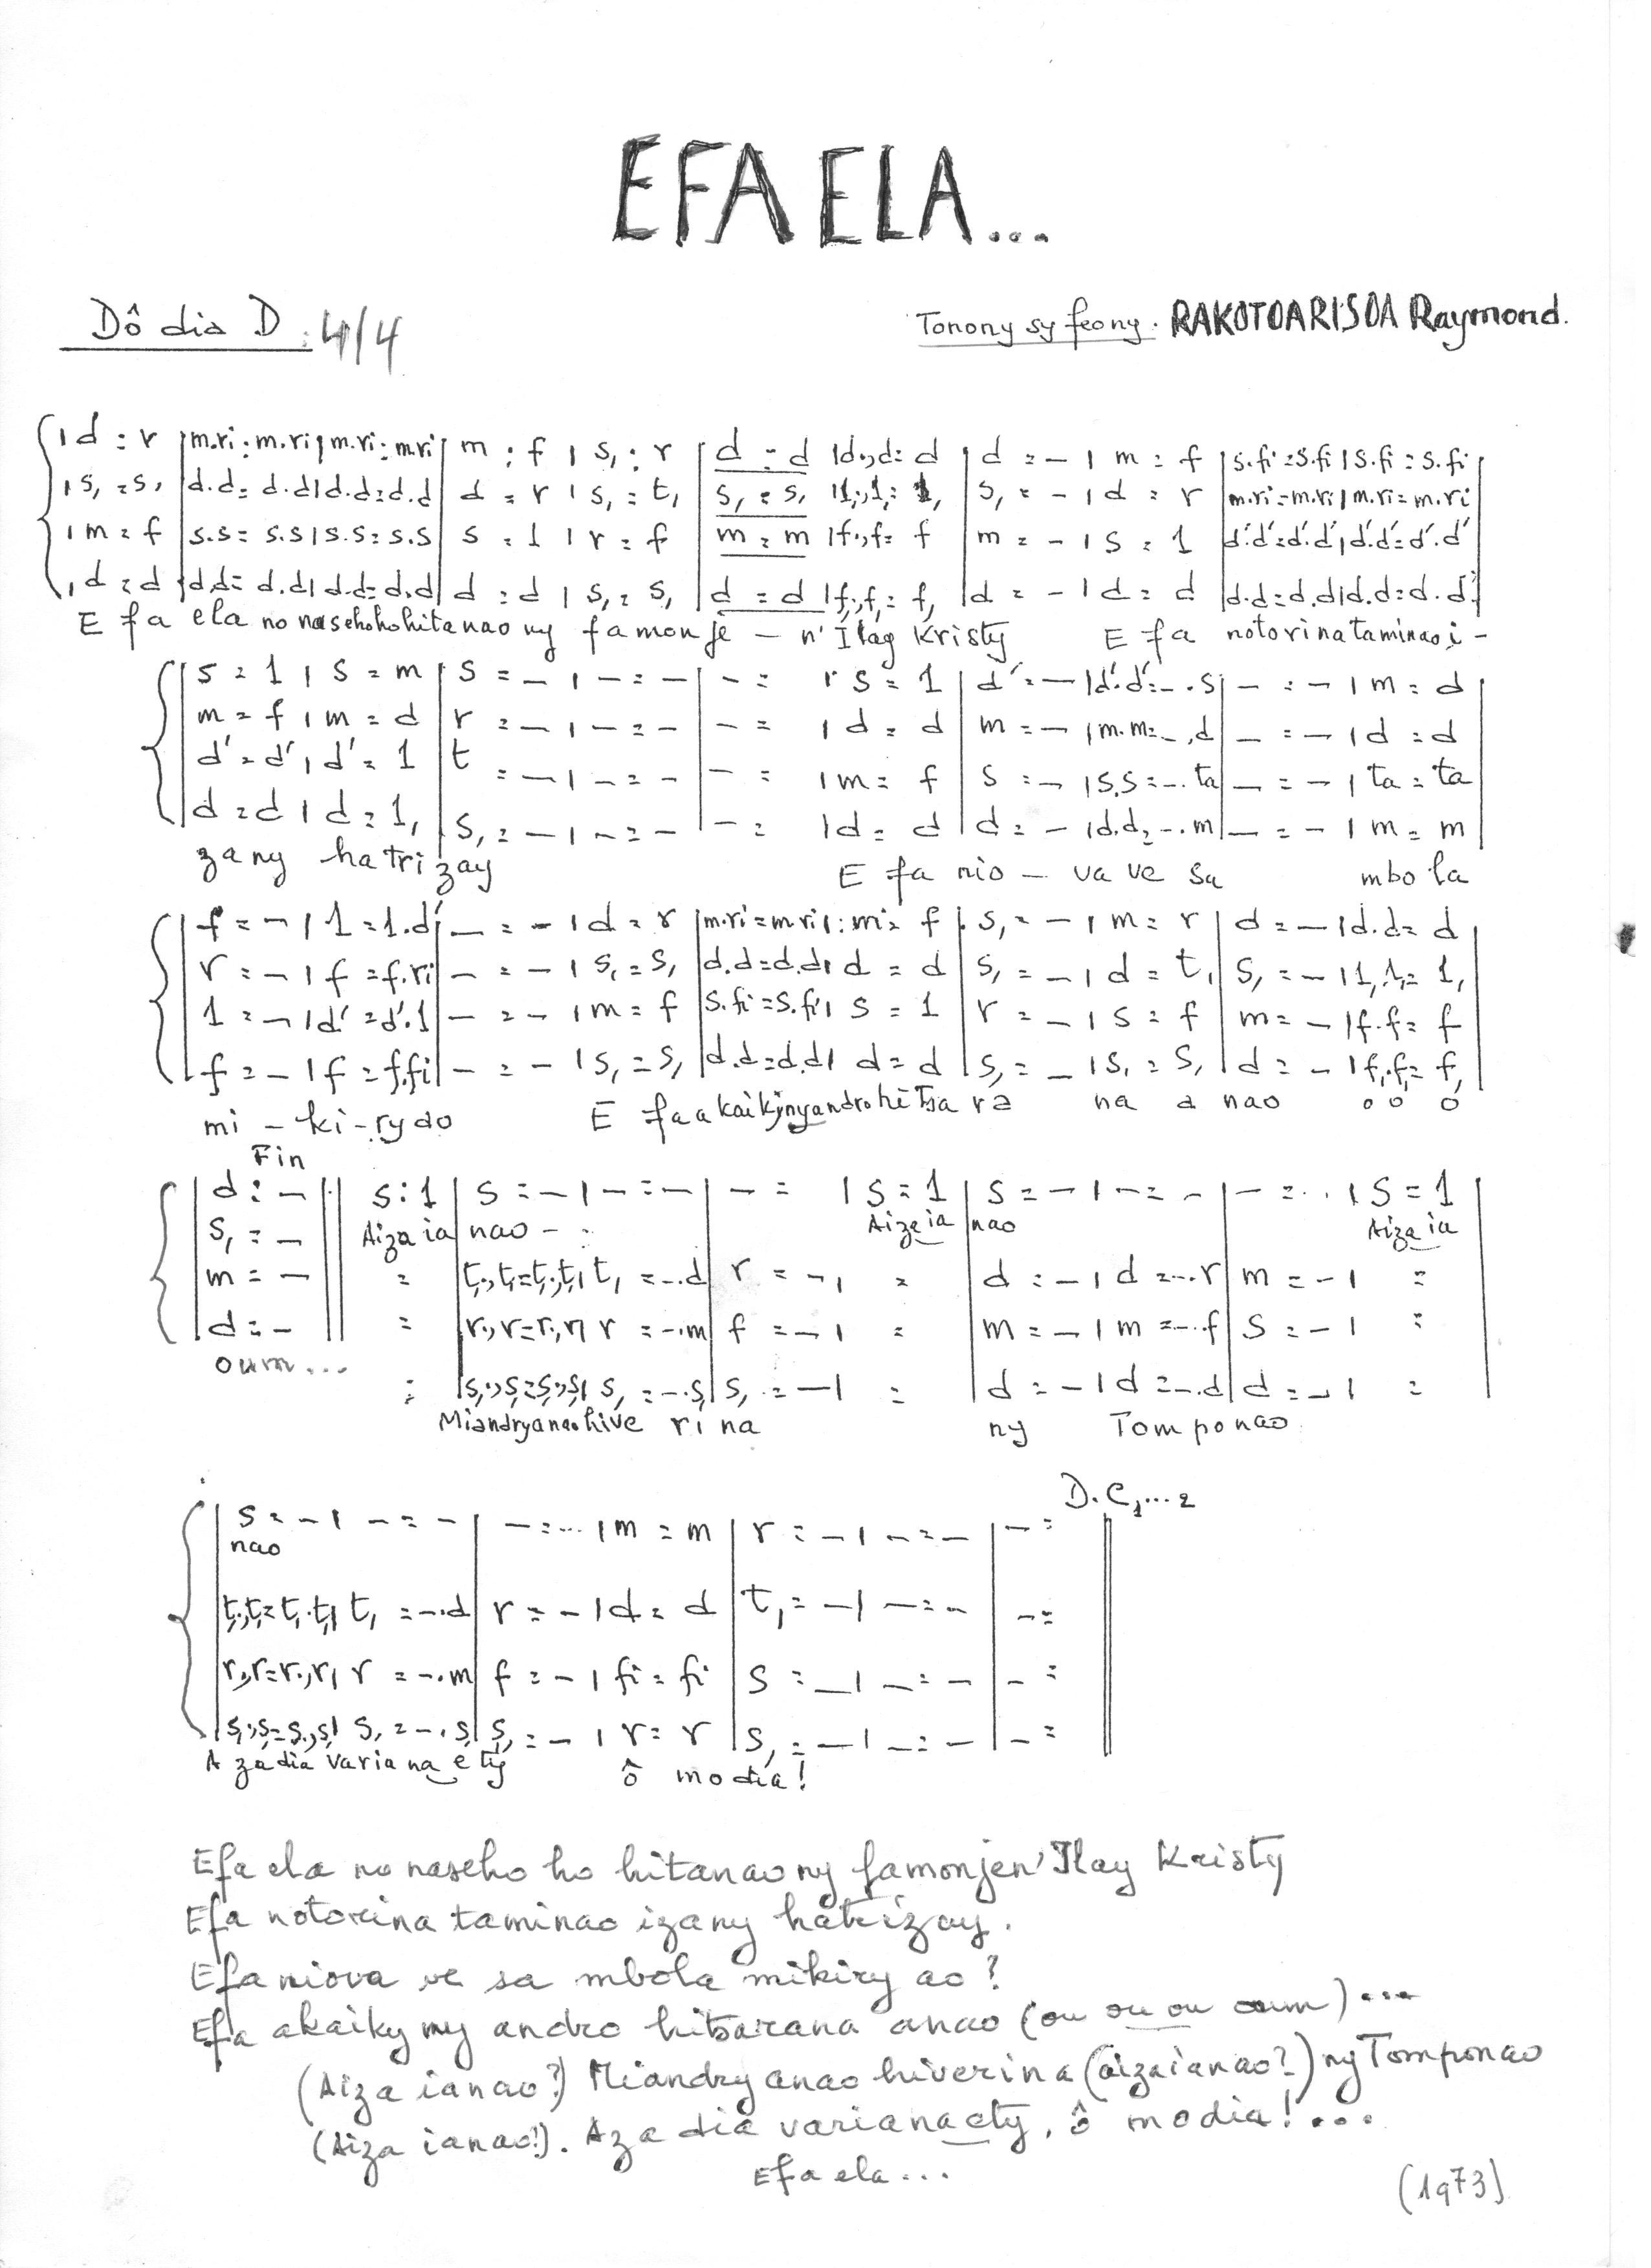 EFA ELA...
Dô dia D : 4/4
Tonony sy feony : RAKOTOARISOA Raymond.
| d : r | m.ri : m.ri | m.ri : m.ri | m : f | s, : r | d : d | d., d : d | d : - | m : f | s.fi : s.fi | s.fi : s.fi |
| s, : s, | d.d : d.d | d.d : d.d | d : r | s, : t, | s, : s, | l,., l, : l, | s, : - | d : r | m.ri : m.ri | m.ri : m.ri
| m : f | s.s : s.s | s.s : s.s | s : l | r : f | m : m | f., f : f | m : - | s : l | d'.d' : d'.d' | d'.d' : d'.d'
| d : d | d.d : d.d | d.d : d.d | d : d | s, : s, | d : d | f,., f, : f, | d : - | d : d | d.d : d.d | d.d : d.d |
E fa ela no naseho ho hitanao ny famonje - n' Ilay Kristy E fa notorina taminao i -
| s : l | s : m | s : - | - : - | - : | s : l | d' : - | d'.d' : - . s | - : - | m : d |
| m : f | m : d | r : - | - : - | - : | d : d | m : - | m.m : - . d | - : - | d : d
| d' : d' | d' : l | t : - | - : - | - : | m : f | s : - | s.s : - . ta | - : - | ta : ta
| d : d | d : l, | s, : - | - : - | - : | d : d | d : - | d.d : - . m | - : - | m : m |
zany hatrizay E fa nio - va ve sa mbola
| f : - | l : l.d' | - : - | d : r | m.ri : m.ri | : mi : f | s, : - | m : r | d : - | d.d : d
| r : - | f : f.ri | - : - | s, : s, | d.d : d.d | d : d | s, : - | d : t, | s, : - | l,.l, : l,
| l : - | d' : d'.l | - : - | m : f | s.fi : s.fi | s : l | r : - | s : f | m : - | f.f : f
| f : - | f : f.fi | - : - | s, : s, | d.d : d.d | d : d | s, : - | s, : s, | d : - | f,.f, : f,
mi - ki - ry ao E fa akaiky ny andro hitsa ra na a nao o o o
Fin
| d : - || s : l | s : - | - : - | - : | s : l | s : - | - : - | - : .. | s : l
| s, : - Aiza ia nao - Aiza ia nao Aiza ia
| m : - || : | t,., t, : t,., t, | t, : - . d | r : - | : | d : - | d : - . r | m : - | :
| d : - || : | r., r : r., r | r : - . m | f : - | : | m : - | m : - . f | s : - | :
oum...
: | s,., s, : s,., s, | s, : - . s, | s, : - | : | d : - | d : - . d | d : - | :
Miandry anao hive ri na ny Tomponao
D.C 1...2
| s : - | - : - | - : ... | m : m | r : - | - : - | - :
nao
| t,., t, : t,., t, | t, : - . d | r : - | d : d | t, : - | - : - | - :
| r., r : r., r | r : - . m | f : - | fi : fi | s : - | - : - | - :
| s,., s, : s,., s, | s, : - . s, | s, : - | r : r | s, : - | - : - | - :
A za dia varia na e ty ô modia!
Efa ela no naseho ho hitanao ny famonjen' Ilay Kristy
Efa notorina taminao izany hatrizay.
Efa niova ve sa mbola mikiry ao ?
Efa akaiky ny andro hitsarana anao (ou ou ou oum)...
(Aiza ianao?) Miandry anao hiverina (aiza ianao?) ny Tomponao
(Aiza ianao!). Aza dia variana ety, ô modia!...
Efa ela...
(1973)